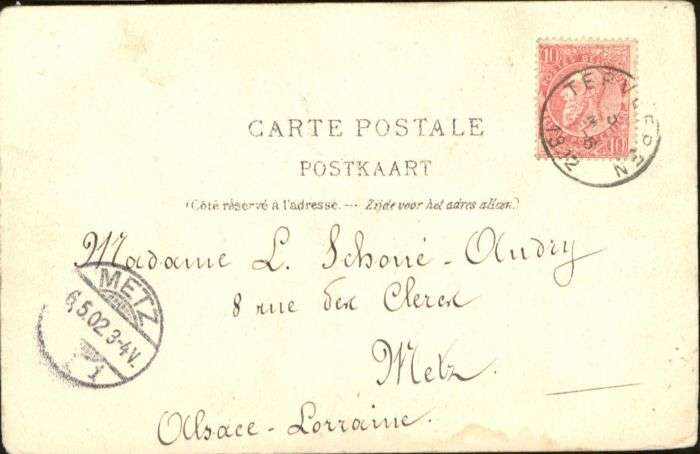 10 10
TERVUEREN
CARTE POSTALE
POSTKAART
(Côté réservé à l'adresse. --- Zijde voor het adres alléén.)
Madame L. Schoué-Audry
8 rue des Clercs
METZ
6.5.02.3-4V.
1
Metz.
Alsace-Lorraine.